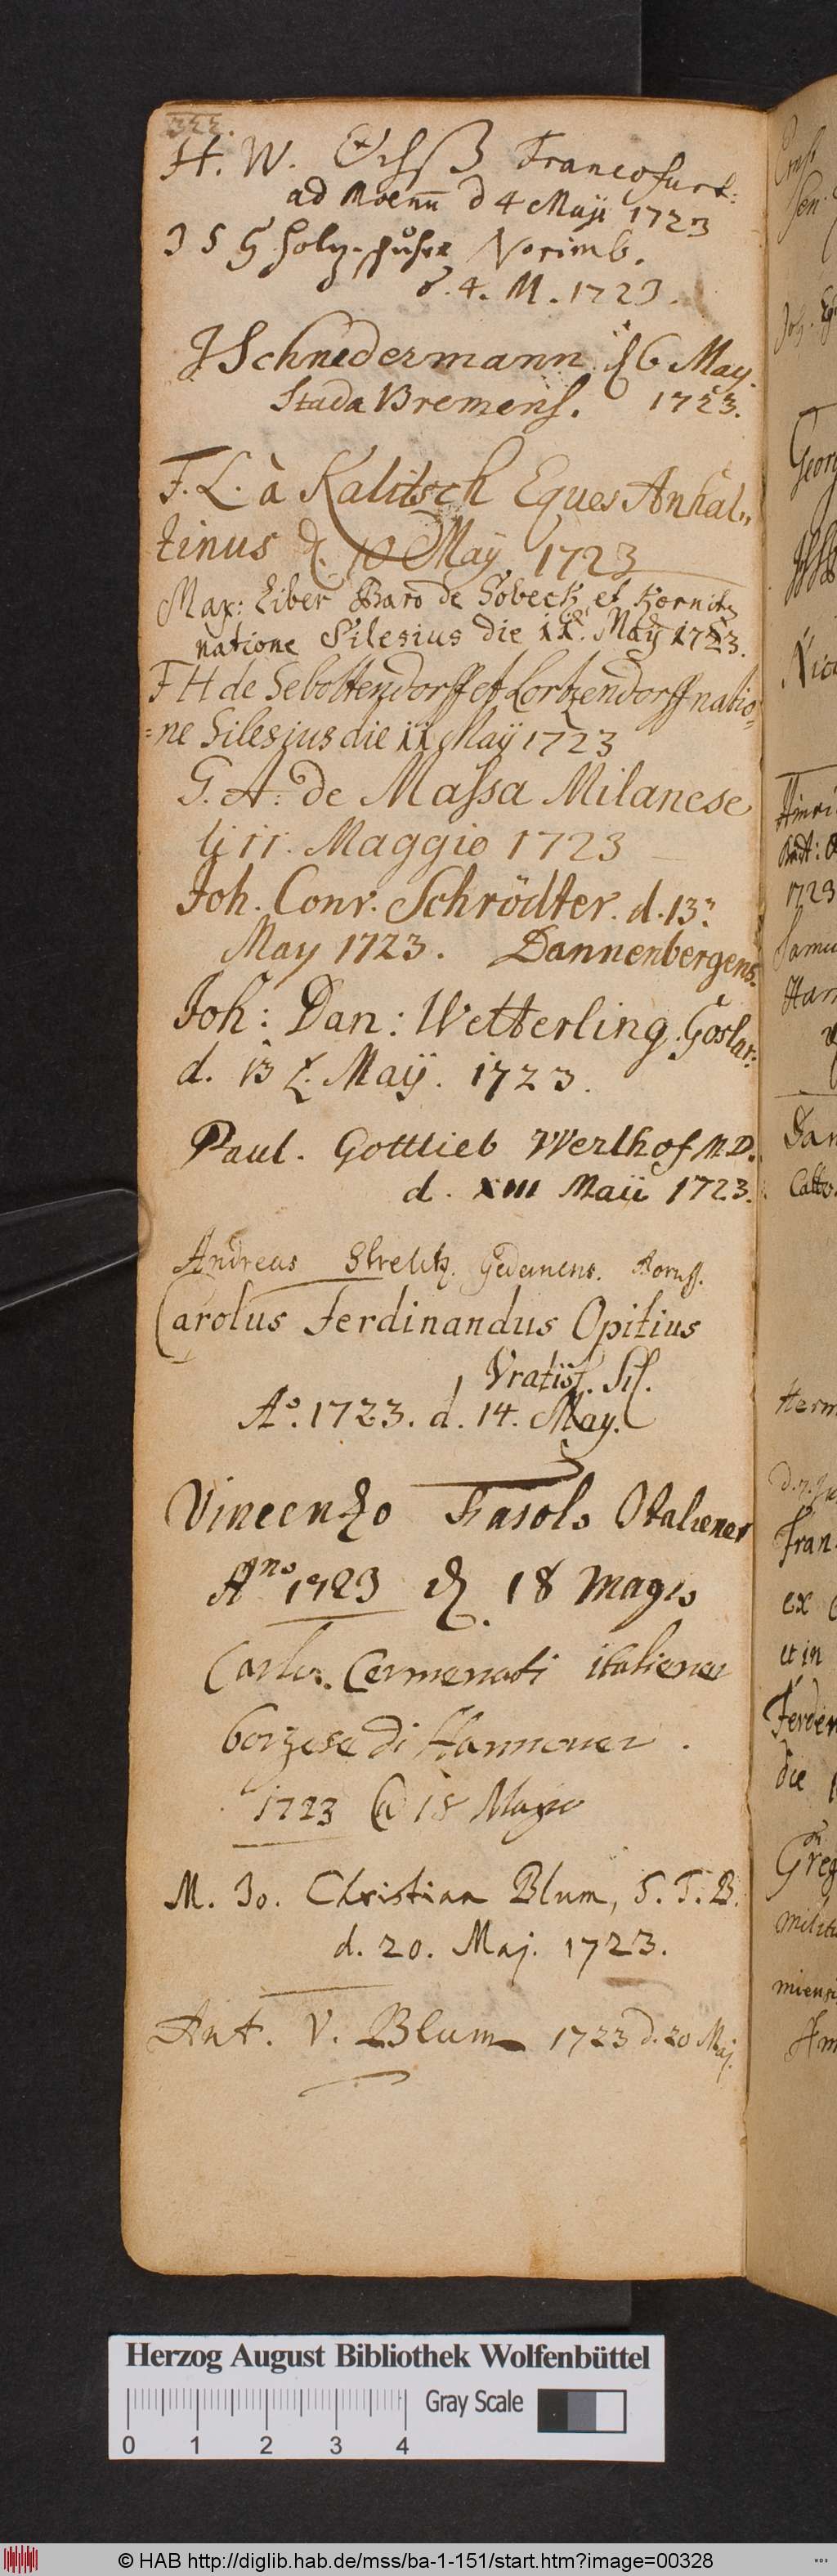 322.
H. W. Francofurt:
ad Moenu d 4 Maji 1723
J S Holzschuher Norimb.
d. 4. M. 1723.
J Schnedermann d 6 May.
Stada Bremens. 1723.
F. L. à Kalitsch Eques Anhal„
tinus d. 10 May 1723
Max: Liber Baro de Sobeck et Kornitz
natione Silesius die 11. May 1723.
F H de Sebottendorff et Lortzendorff natio=
=ne Silesius die 11 Maÿ 1723
G. A: de Massa Milanese
li 11. Maggio 1723
Joh. Conr. Schrödter. d. 13.
May 1723. Dannenbergens.
Joh: Dan: Wetterling. Goslar:
d. 13 Maÿ. 1723.
Paul. Gottlieb Werlhof M.D.
d. XIII Maii 1723.
Andreas Strelitz. Gedanens. Boruss.
Carolus Ferdinandus Opitius
Vratisl. Sil.
Ao. 1723. d. 14. May.
Vincenzo Fasolo Italiener
Ano 1723 d. 18 Magio
Carlo Cermenati italiener
borgese di Hannover.
1723 18 Magio
M. Jo. Christian Blum, S. T. B.
d. 20. Maj. 1723.
Ant. V. Blum 1723 d. 20 Maj.
Georg
1723
Samu
Dan
Herm
Fran
ex
et in
die
Greg
Herzog August Bibliothek Wolfenbüttel
Gray Scale
0 1 2 3 4
© HAB http://diglib.hab.de/mss/ba-1-151/start.htm?image=00328